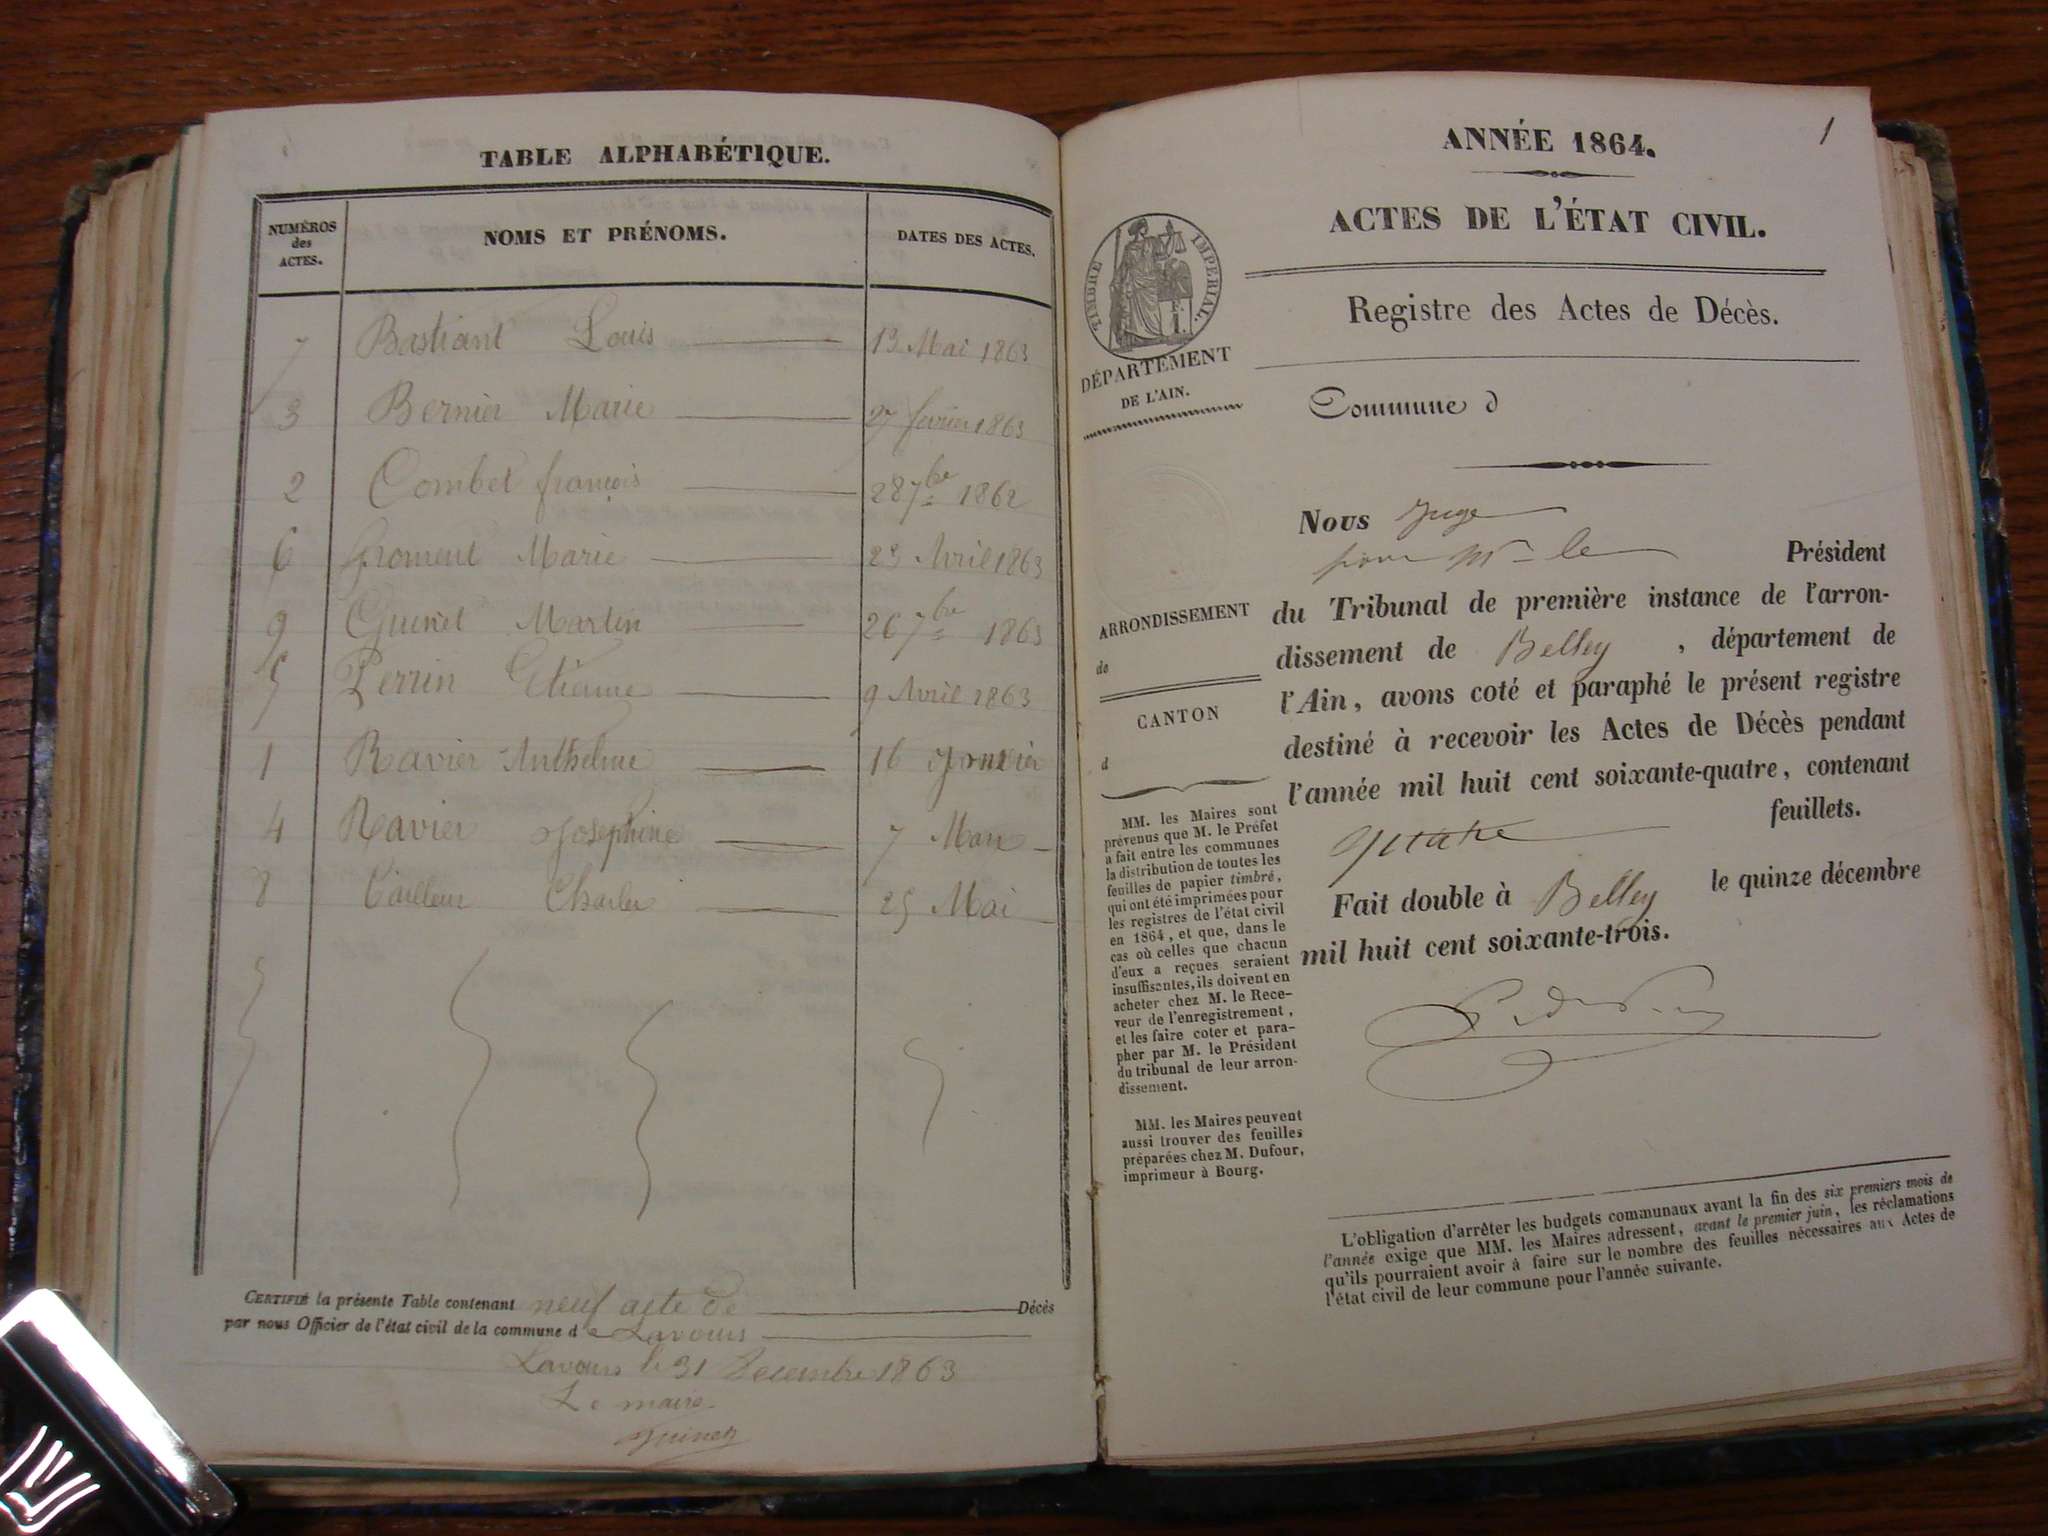 TABLE ALPHABÉTIQUE.
NUMÉROS des ACTES. NOMS ET PRÉNOMS. DATES DES ACTES.
7 Bastiant Louis 13 Mai 1863
3 Bernier Marie 27 fevrier 1863
2 Combet françois 28 7bre 1862
6 froment Marie 23 Avril 1863
9 Guinet Martin 26 7bre 1863
5 Perrin Etienne 9 Avril 1863
1 Ravier Anthelme 16 Janvier
4 Ravier Josephine 7 Mars
8 Tailleur Charles 25 Mai
CERTIFIÉ la présente Table contenant neuf acte de Décès
par nous Officier de l'état civil de la commune de Lavours
Lavours le 31 Decembre 1863
Le maire
Guinet
1
ANNÉE 1864.
ACTES DE L'ÉTAT CIVIL.
TIMBRE IMPÉRIAL.
Registre des Actes de Décès.
DÉPARTEMENT
DE L'AIN.
Commune d
Nous Juge
pour Mr le Président
du Tribunal de première instance de l'arron-
dissement de Belley, département de
l'Ain, avons coté et paraphé le présent registre
destiné à recevoir les Actes de Décès pendant
l'année mil huit cent soixante-quatre, contenant
quatre feuillets.
Fait double à Belley le quinze décembre
mil huit cent soixante-trois.
ARRONDISSEMENT
de
CANTON
d
MM. les Maires sont
prévenus que M. le Préfet
a fait entre les communes
la distribution de toutes les
feuilles de papier timbré,
qui ont été imprimées pour
les registres de l'état civil
en 1864, et que, dans le
cas où celles que chacun
d'eux a reçues seraient
insuffisantes, ils doivent en
acheter chez M. le Rece-
veur de l'enregistrement,
et les faire coter et para-
pher par M. le Président
du tribunal de leur arron-
dissement.
MM. les Maires peuvent
aussi trouver des feuilles
préparées chez M. Dufour,
imprimeur à Bourg.
L'obligation d'arrêter les budgets communaux avant la fin des six premiers mois de
l'année exige que MM. les Maires adressent, avant le premier juin, les réclamations
qu'ils pourraient avoir à faire sur le nombre des feuilles nécessaires aux Actes de
l'état civil de leur commune pour l'année suivante.